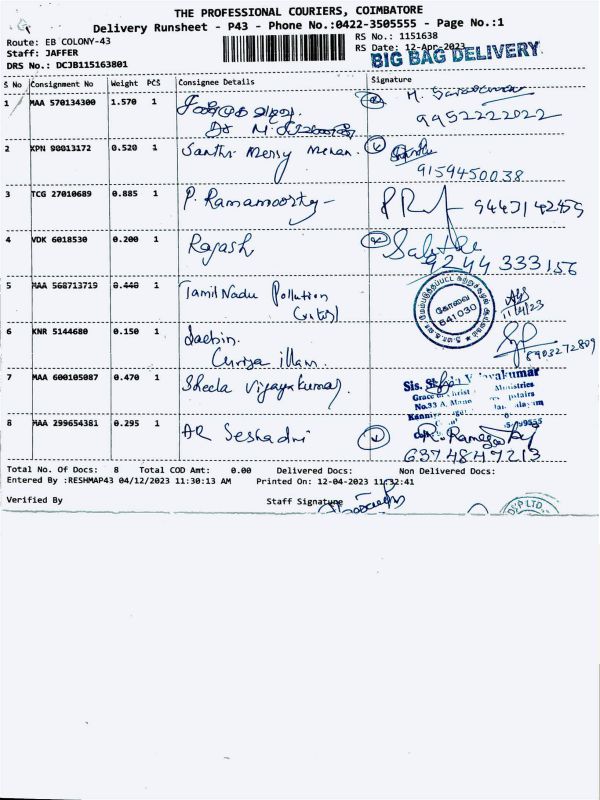 THE PROFESSIONAL COURIERS, COIMBATORE
Delivery Runsheet - P43 - Phone No.:0422-3505555 - Page No.:1
Route: EB COLONY-43
RS No.: 1151638
Staff: JAFFER
RS Date: 12-Apr-2023
DRS No.: DCJB115163801
BIG BAG DELIVERY
S No Consignment No Weight PCS Consignee Details Signature
1 MAA 570134300 1.570 1
9952222022
2 KPN 90013172 0.520 1 Santhi Mersy Menan.
9159450038
3 TCG 27010689 0.885 1 P. Ramamoorthy
4 VDK 6018530 0.200 1 Rajash
9244333156
5 MAA 568713719 0.440 1 Tamil Nadu Pollution
கோவை
641030
11/4/23
6 KNR 5144680 0.150 1
illam
8903272809
7 MAA 600105087 0.470 1 Sheela Vijayakumar.
Sis. Vijayakumar
Grace Christ Ministries
No.33 A,
8 MAA 299654381 0.295 1 AR Seshadri
6374847213
Total No. Of Docs: 8 Total COD Amt: 0.00 Delivered Docs: Non Delivered Docs:
Entered By :RESHMAP43 04/12/2023 11:30:13 AM Printed On: 12-04-2023 11:32:41
Verified By Staff Signature
PVT LTD.